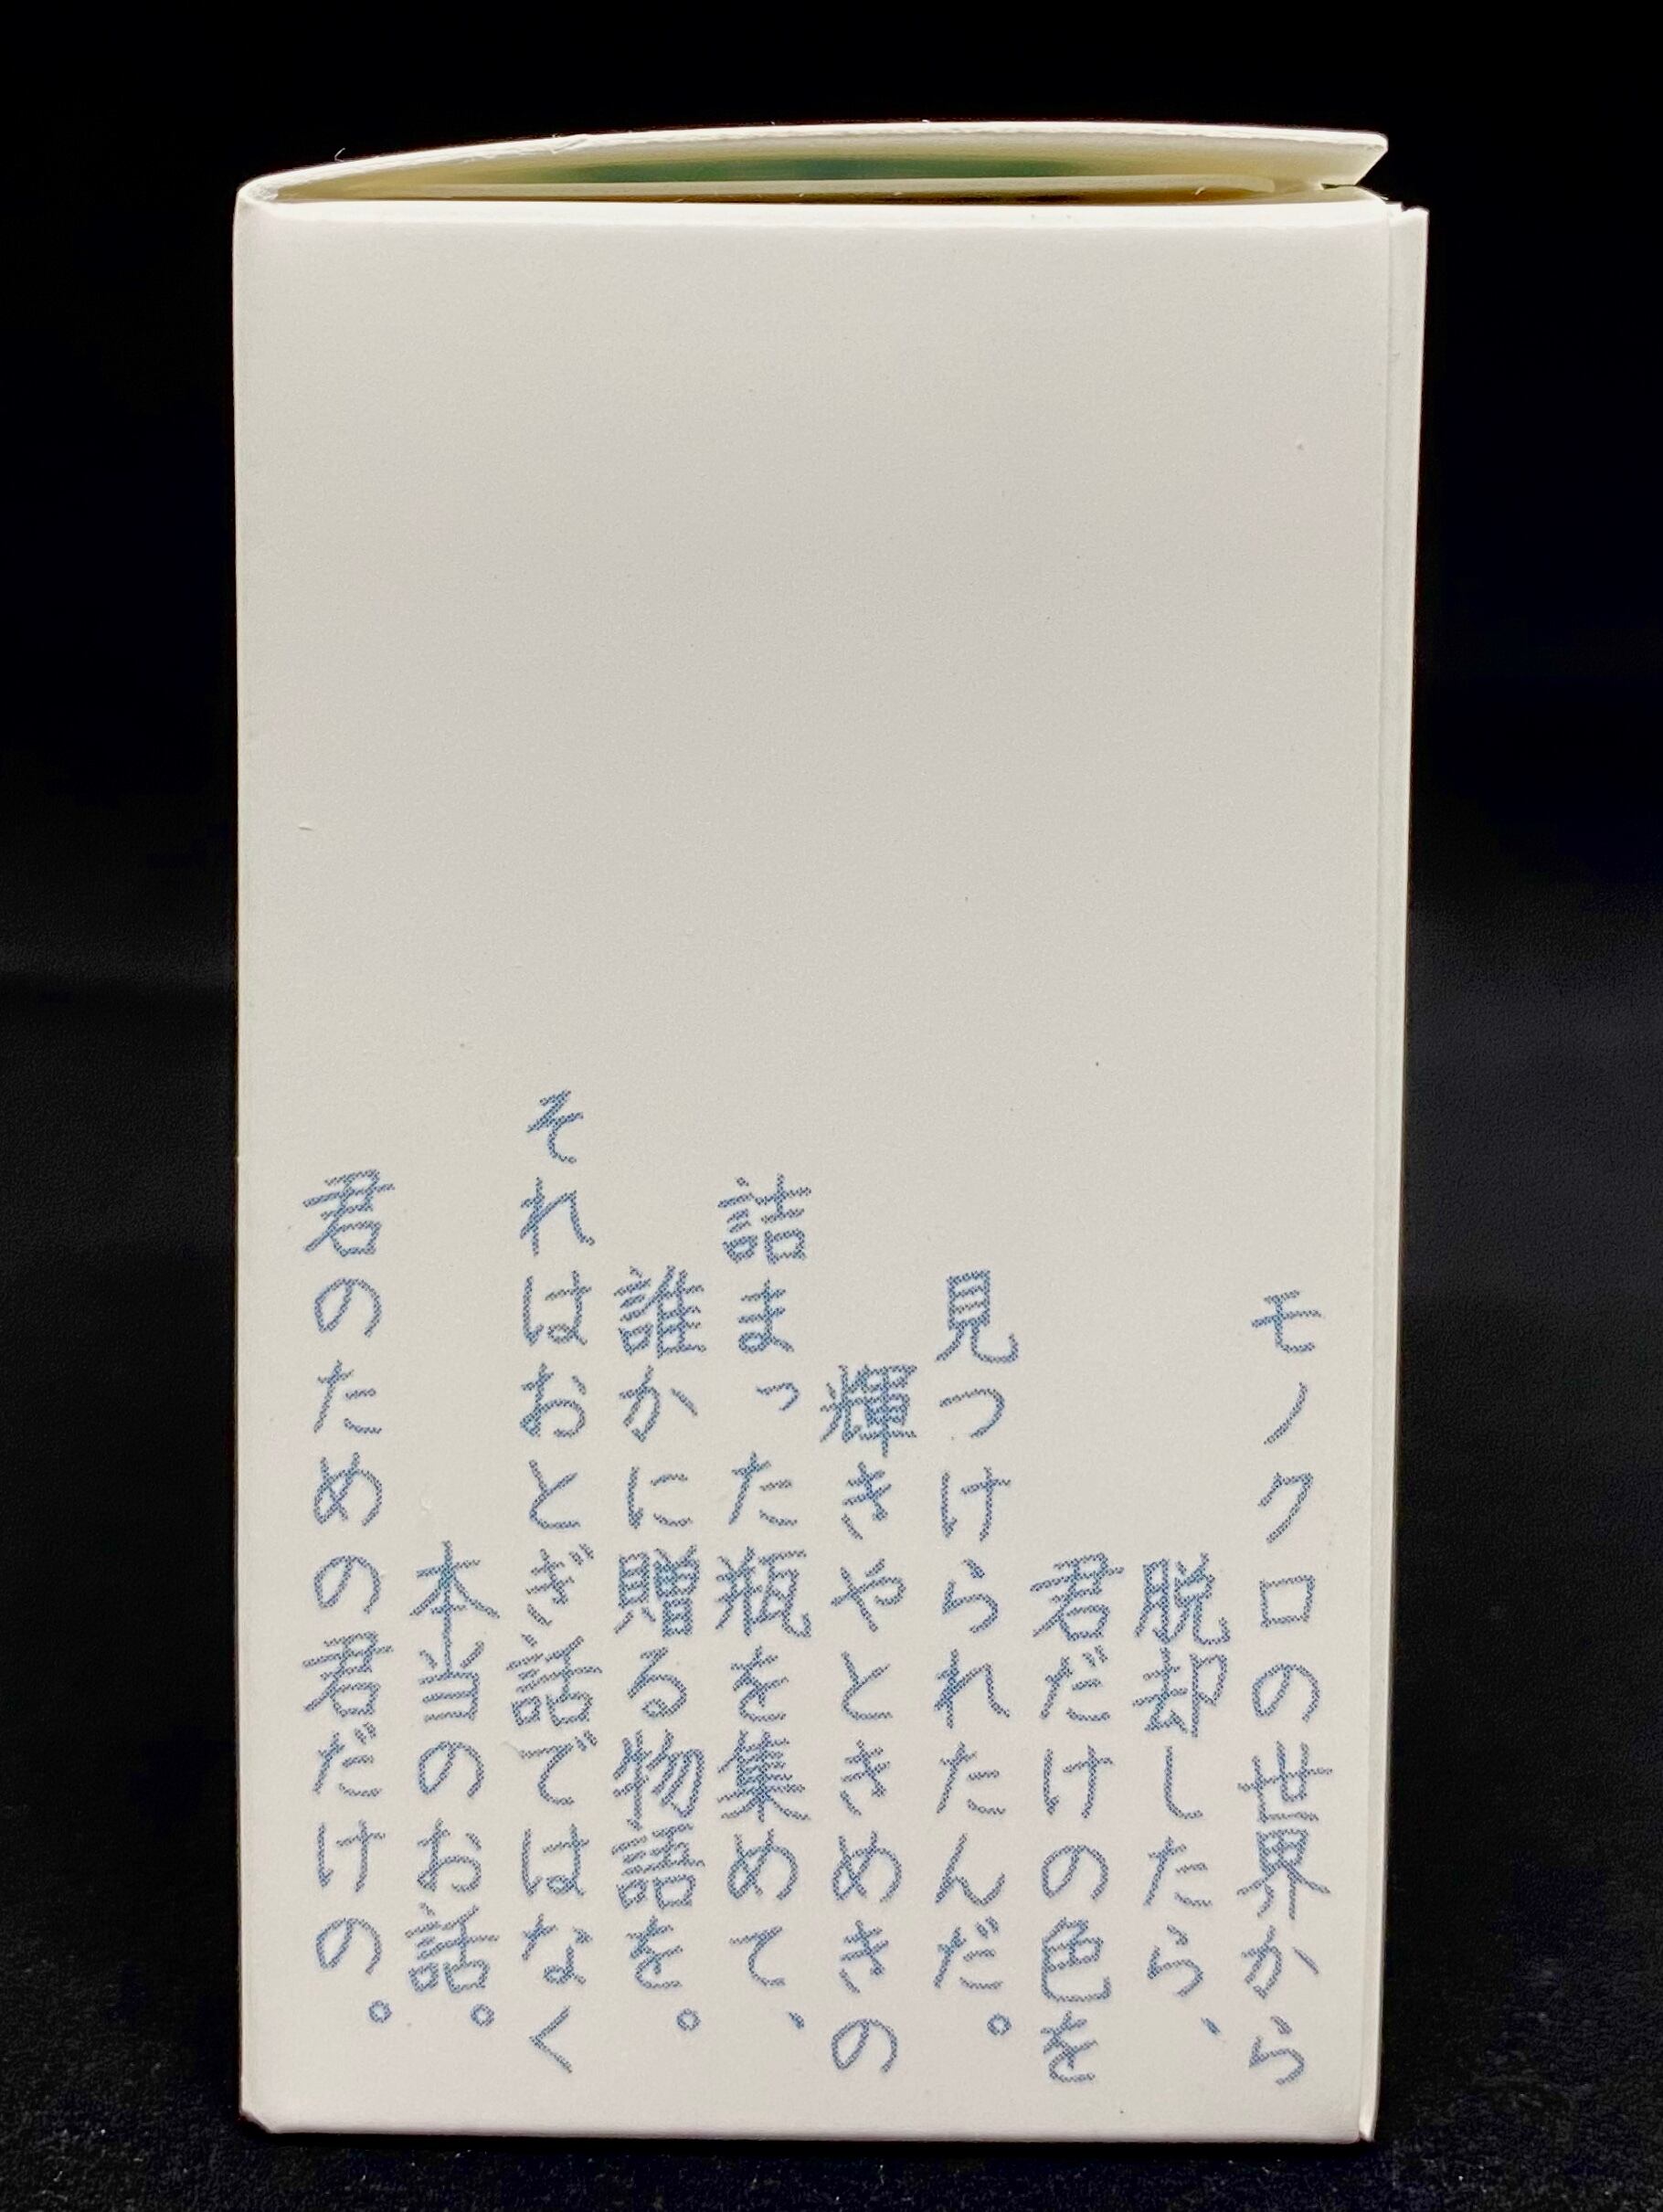 モノクロの世界から
脱却したら、
君だけの色を
見つけられたんだ。
輝きやときめきの
詰まった瓶を集めて、
誰かに贈る物語を。
それはおとぎ話ではなく
本当のお話。
君のための君だけの。